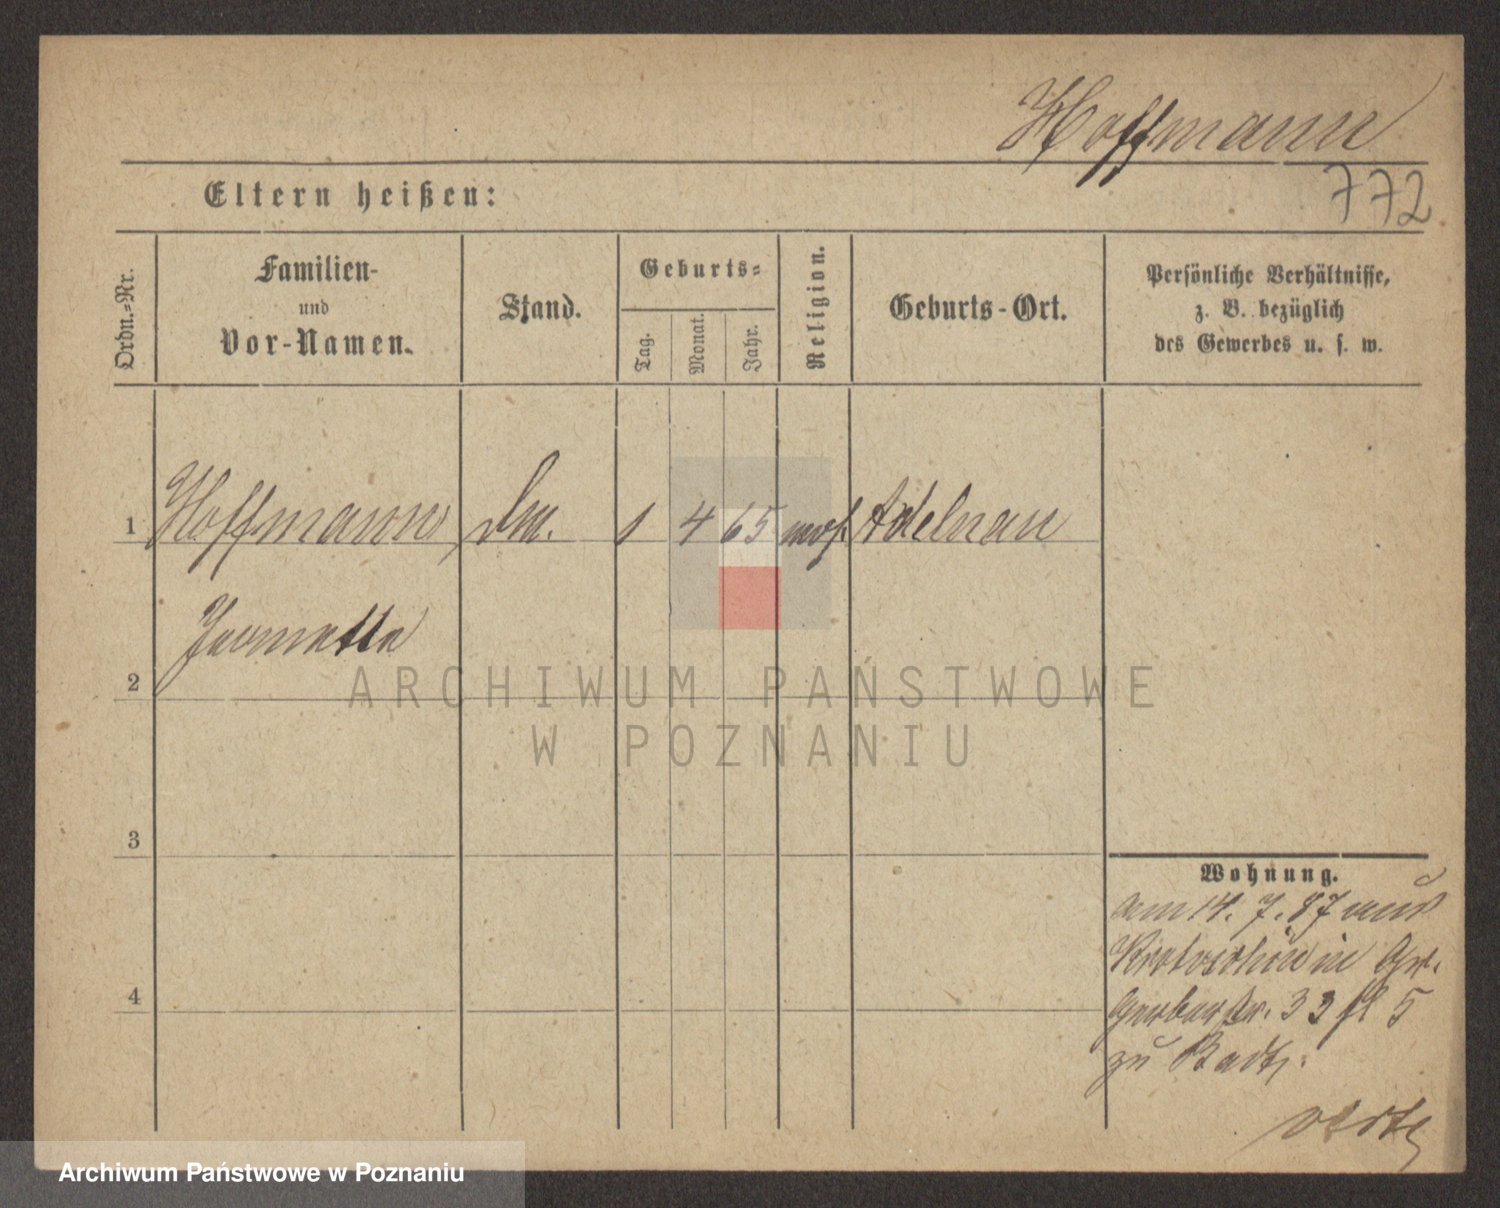 Hoffmann
772
Eltern heißen:
Ordn.-Nr.
Familien-
und
Vor-Namen.
Stand.
Geburts-
Tag.
Monat.
Jahr.
Religion.
Geburts-Ort.
Persönliche Verhältnisse,
z. B. bezüglich
des Gewerbes u. s. w.
1 Hoffmann, 1 4 65 mos. Adelnau
2
3
4
Wohnung.
am 14. 7. 87 aus
Krotoschin in Gr.
Gerberstr. 33
zu
ARCHIWUM PAŃSTWOWE
W POZNANIU
Archiwum Państwowe w Poznaniu